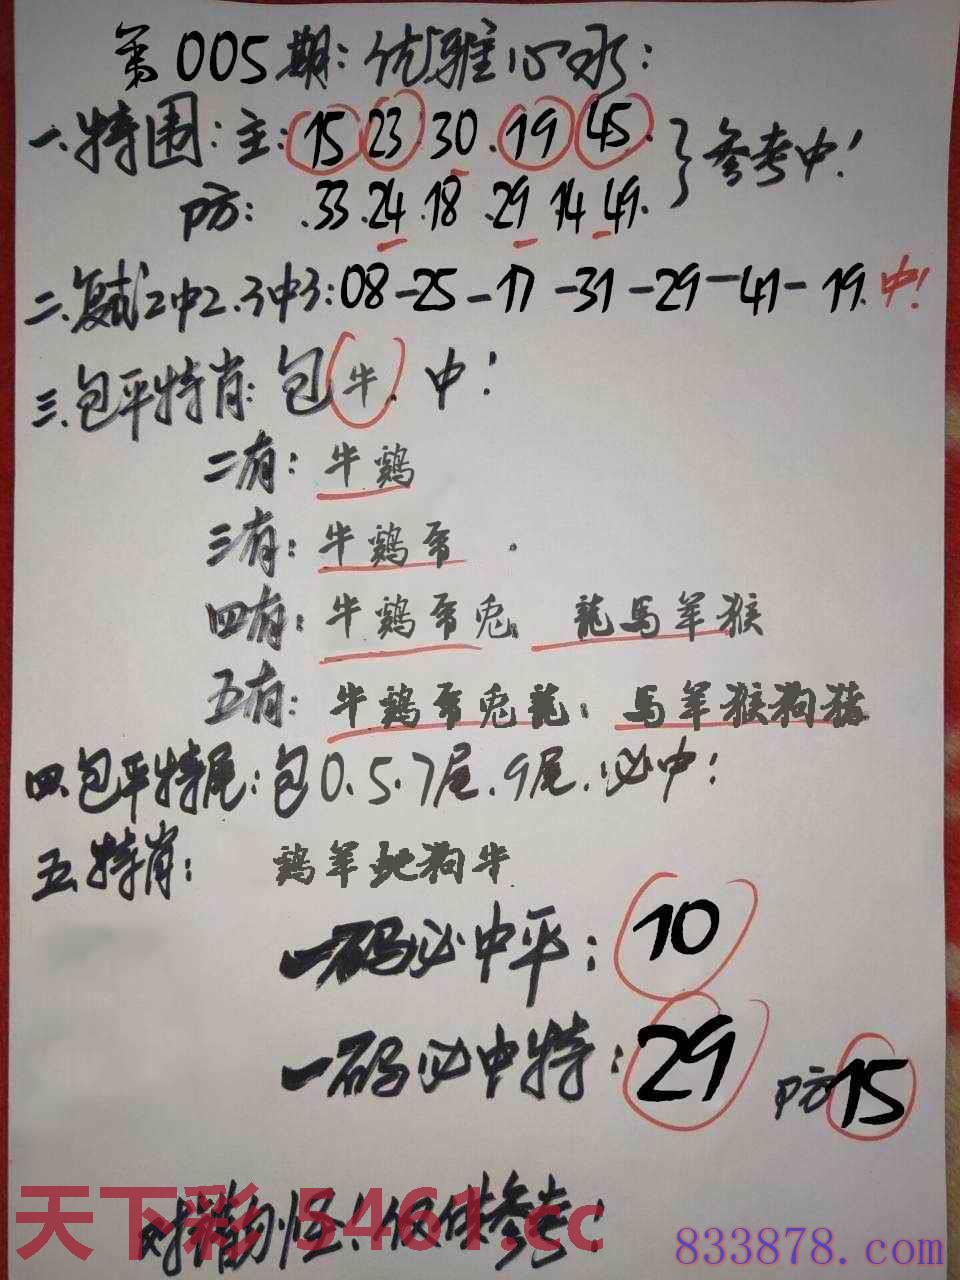 第005期:优雅心水:
一.特围:主:15 23.30.19 45.}参考中!
防:.33.24.18.29 14 49.
二.复式2中2.3中3:08-25-17-31-29-41-19.中!
三.包平特肖:包牛.中!
二有:牛鷄
三有:牛鷄帍.
四有:牛鷄帍兎.龍馬羊猴
五有:牛鷄帍兎龍:馬羊猴狗猪
四.包平特尾:包0.5.7尾.9尾.必中!
五.特肖:鷄羊虵狗牛.
一码必中平:10
一码必中特:29 防15
料错勿怪!仅供参考!
天下彩 5461.cc
833878.com